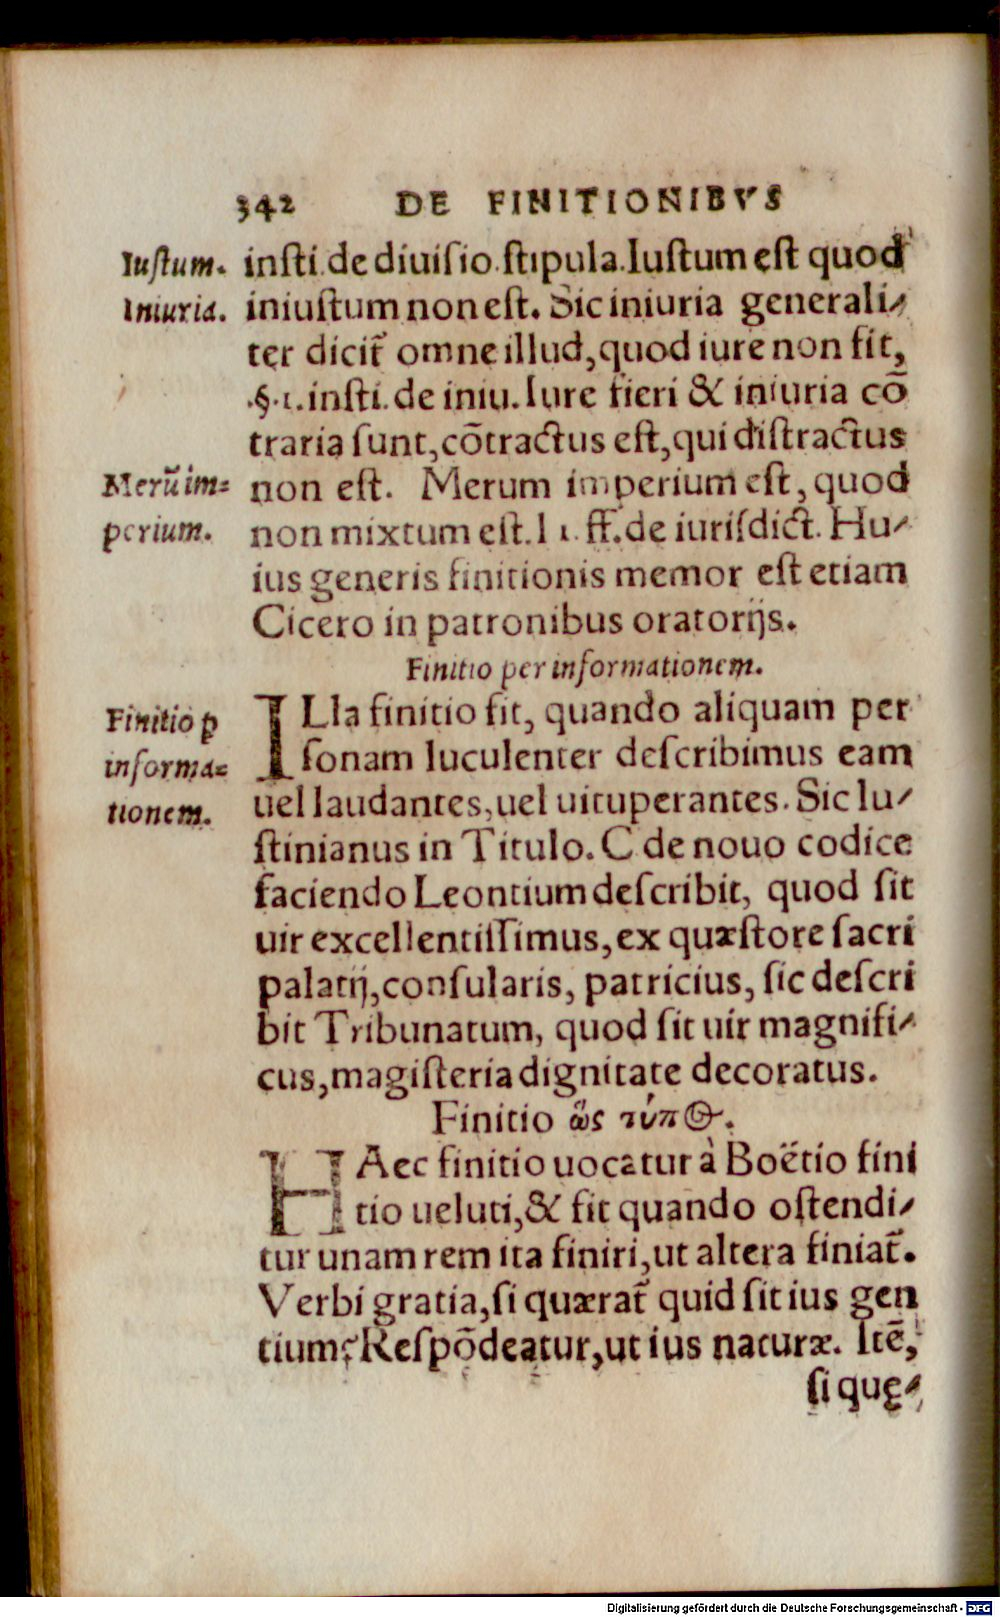 342 DE FINITIONIBVS
Iuſtum. inſti. de diuiſio. ſtipula. Iuſtum eſt quod
Iniuria. iniuſtum non eſt. Sic iniuria generali⸗
ter dicit̃ omne illud, quod iure non fit,
.§.1. inſti. de iniu. Iure fieri & iniuria cõ
traria ſunt, cõtractus eſt, qui diſtractus
Merũ im⸗ non eſt. Merum imperium eſt, quod
perium. non mixtum eſt. l 1. ff. de iuriſdict. Hu⸗
ius generis finitionis memor eſt etiam
Cicero in patronibus oratorijs.
Finitio per informationem.
Finitio ꝑ ILla finitio fit, quando aliquam per
informa⸗ ſonam luculenter deſcribimus eam
tionem. uel laudantes, uel uituperantes. Sic Iu⸗
ſtinianus in Titulo. C de nouo codice
faciendo Leontium deſcribit, quod ſit
uir excellentiſſimus, ex quæſtore ſacri
palatij, conſularis, patricius, ſic deſcri
bit Tribunatum, quod ſit uir magnifi⸗
cus, magiſteria dignitate decoratus.
Finitio ὣς τύπος.
HAec finitio uocatur à Boëtio fini
tio ueluti, & fit quando oſtendi⸗
tur unam rem ita finiri, ut altera finiat̃.
Verbi gratia, ſi quærat̃ quid ſit ius gen
tium? Reſpõdeatur, ut ius naturæ. Itẽ,
ſi quę⸗
Digitalisierung gefördert durch die Deutsche Forschungsgemeinschaft - DFG